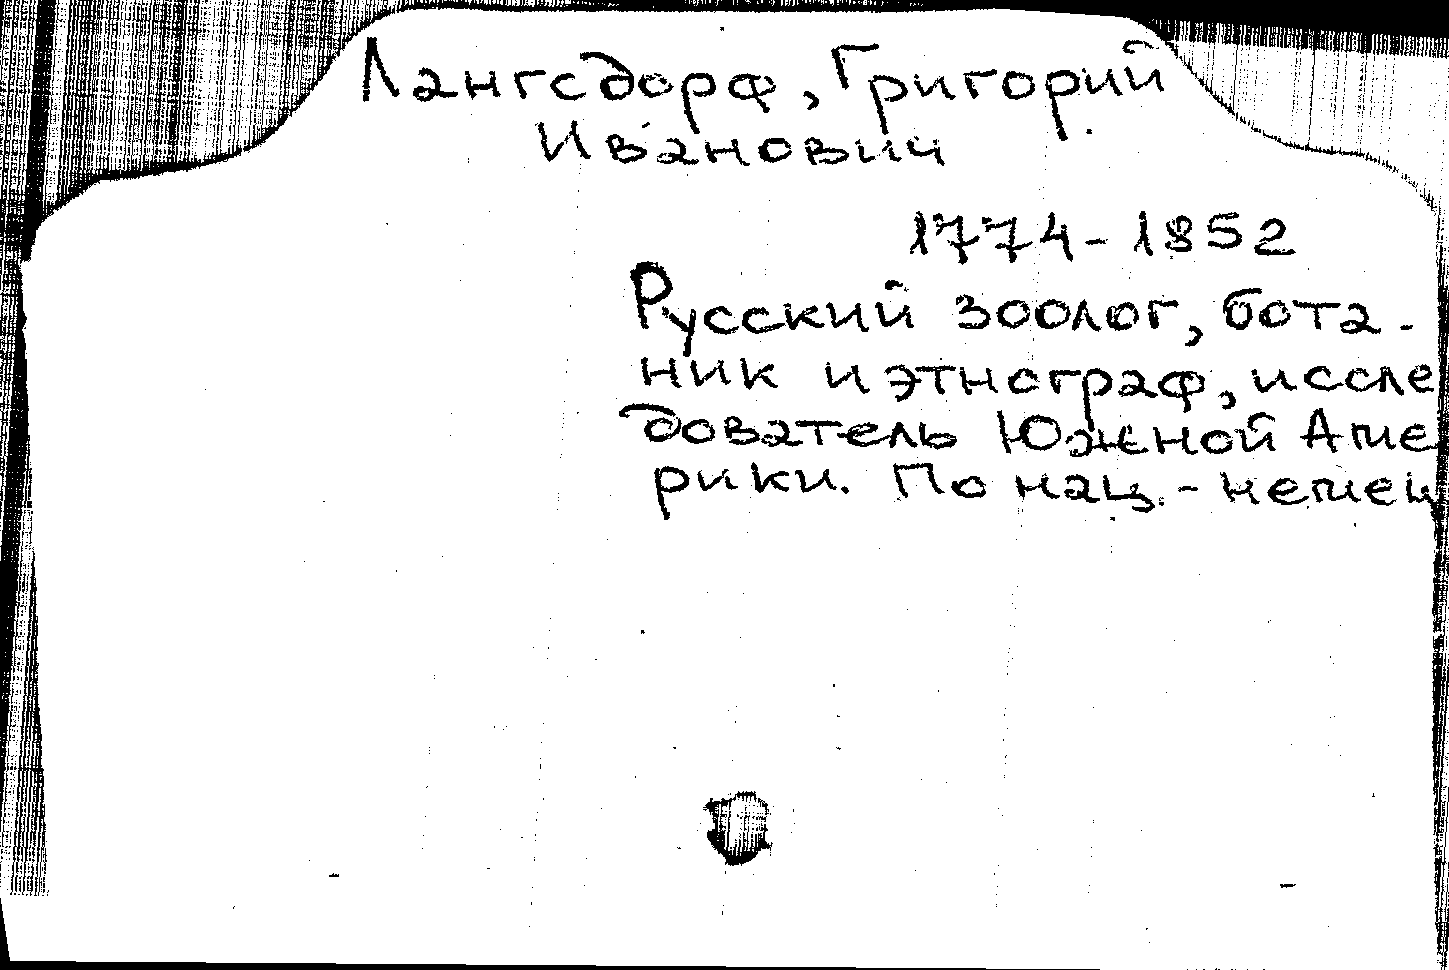 Лангсдорф, Григорий
Иванович
1774-1852
Русский зоолог, бота-
ник и этнограф, иссле
дователь Южной Аме
рики. По нац.- немец